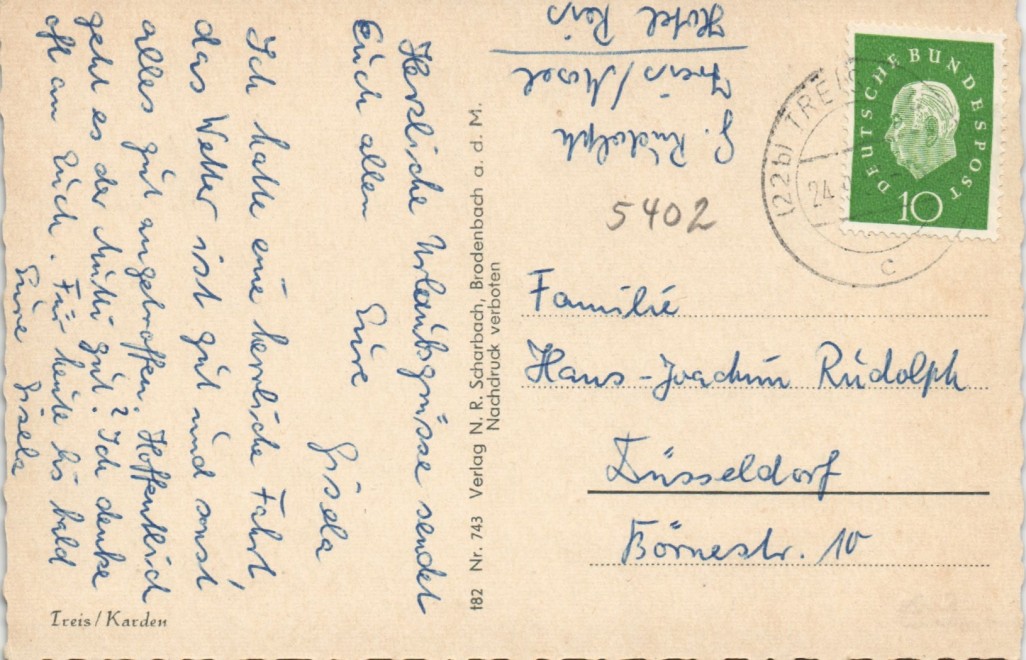 Herzliche Urlaubsgrüsse sendet
Euch allen Eure
Gisela
Ich hatte eine herrliche Fahrt,
das Wetter ist gut und sonst
alles gut angetroffen. Hoffentlich
geht es der Mutti gut? Ich denke
oft an Euch. Für heute bis bald
Eure Gisela
Treis/Karden
t82 Nr. 743 Verlag N. R. Scharbach, Brodenbach a. d. M.
Nachdruck verboten
G. Rudolph
Treis/Mosel
Hotel Reis
5402
(22b) TREIS
24.
c
DEUTSCHE BUNDESPOST
10
Familie
Hans-Joachim Rudolph
Düsseldorf
Börnestr. 10